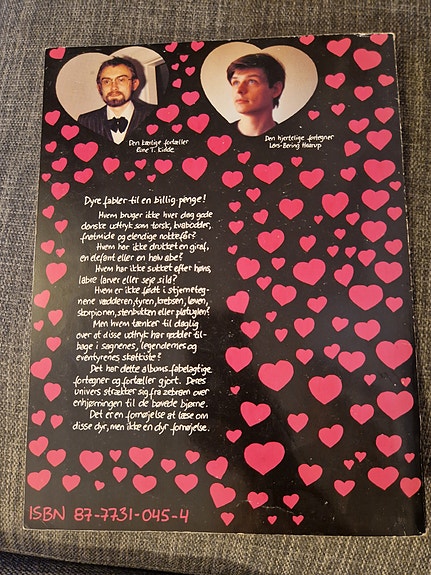 Den kærlige fortæller
Eine T. Kidde
Den hjertelige fortegner
Lars-Bering Haarup
Dyre fabler til en billig penge!
Hvem bruger ikke hver dag gode
danske udtryk som torsk, kvabodder,
frøtmide og elendige nokkefår?
Hvem har ikke drukket en giraf,
en elefant eller en halv abe?
Hvem har ikke sukket efter høns,
labre larver eller seje sild?
Hvem er ikke født i stjerneteg-
nene vædderen, tyren, krebsen, løven,
skorpionen, stenbukken eller pløtuglen?
Men hvem tænker til daglig
over at disse udtryk har rødder til-
bage i sagnenes, legendernes og
eventyrenes skattiste?
Det har dette albums fabelagtige
fortegner og fortæller gjort. Deres
univers strækker sig fra zebraen over
enhjørningen til de bavede bjørne.
Det er en fornøjelse at læse om
disse dyr, men ikke en dyr fornøjelse.
ISBN 87-7731-045-4